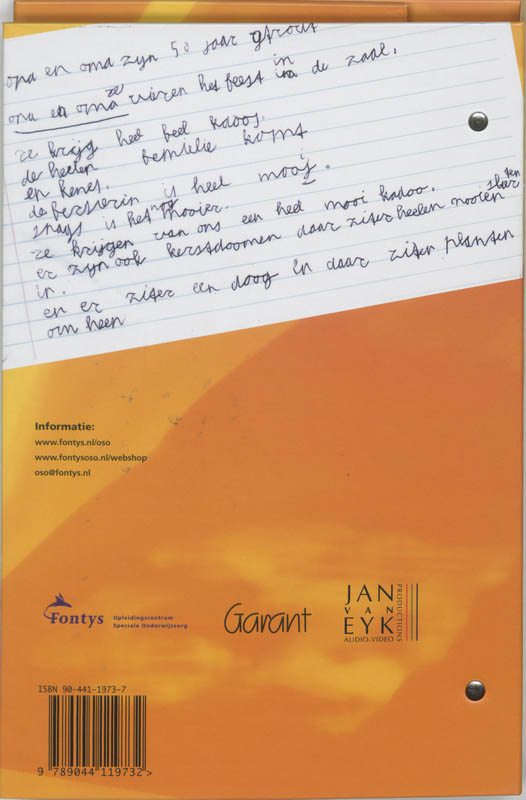 opa en oma zyn 50 jaar getrout
opa en oma ze vieren het feest in de zaal.
ze krijg heel beel kadoos.
de heelen bemielie komt
en kenes.
de bersierin is heel mooi.
snags is het nog mooier.
ze krijgen van ons een heel mooi kadoo.
er zyn ook kerstdoomen daar ziter heelen mooien
in.
en er ziter een doog in daar ziten planten
om heen
Informatie:
www.fontys.nl/oso
www.fontysoso.nl/webshop
oso@fontys.nl
Fontys
Opleidingscentrum
Speciale Onderwijszorg
Garant
JAN
VAN
EYK
AUDIO-VIDEO
PRODUCTIONS
ISBN 90-441-1973-7
9 789044 119732>